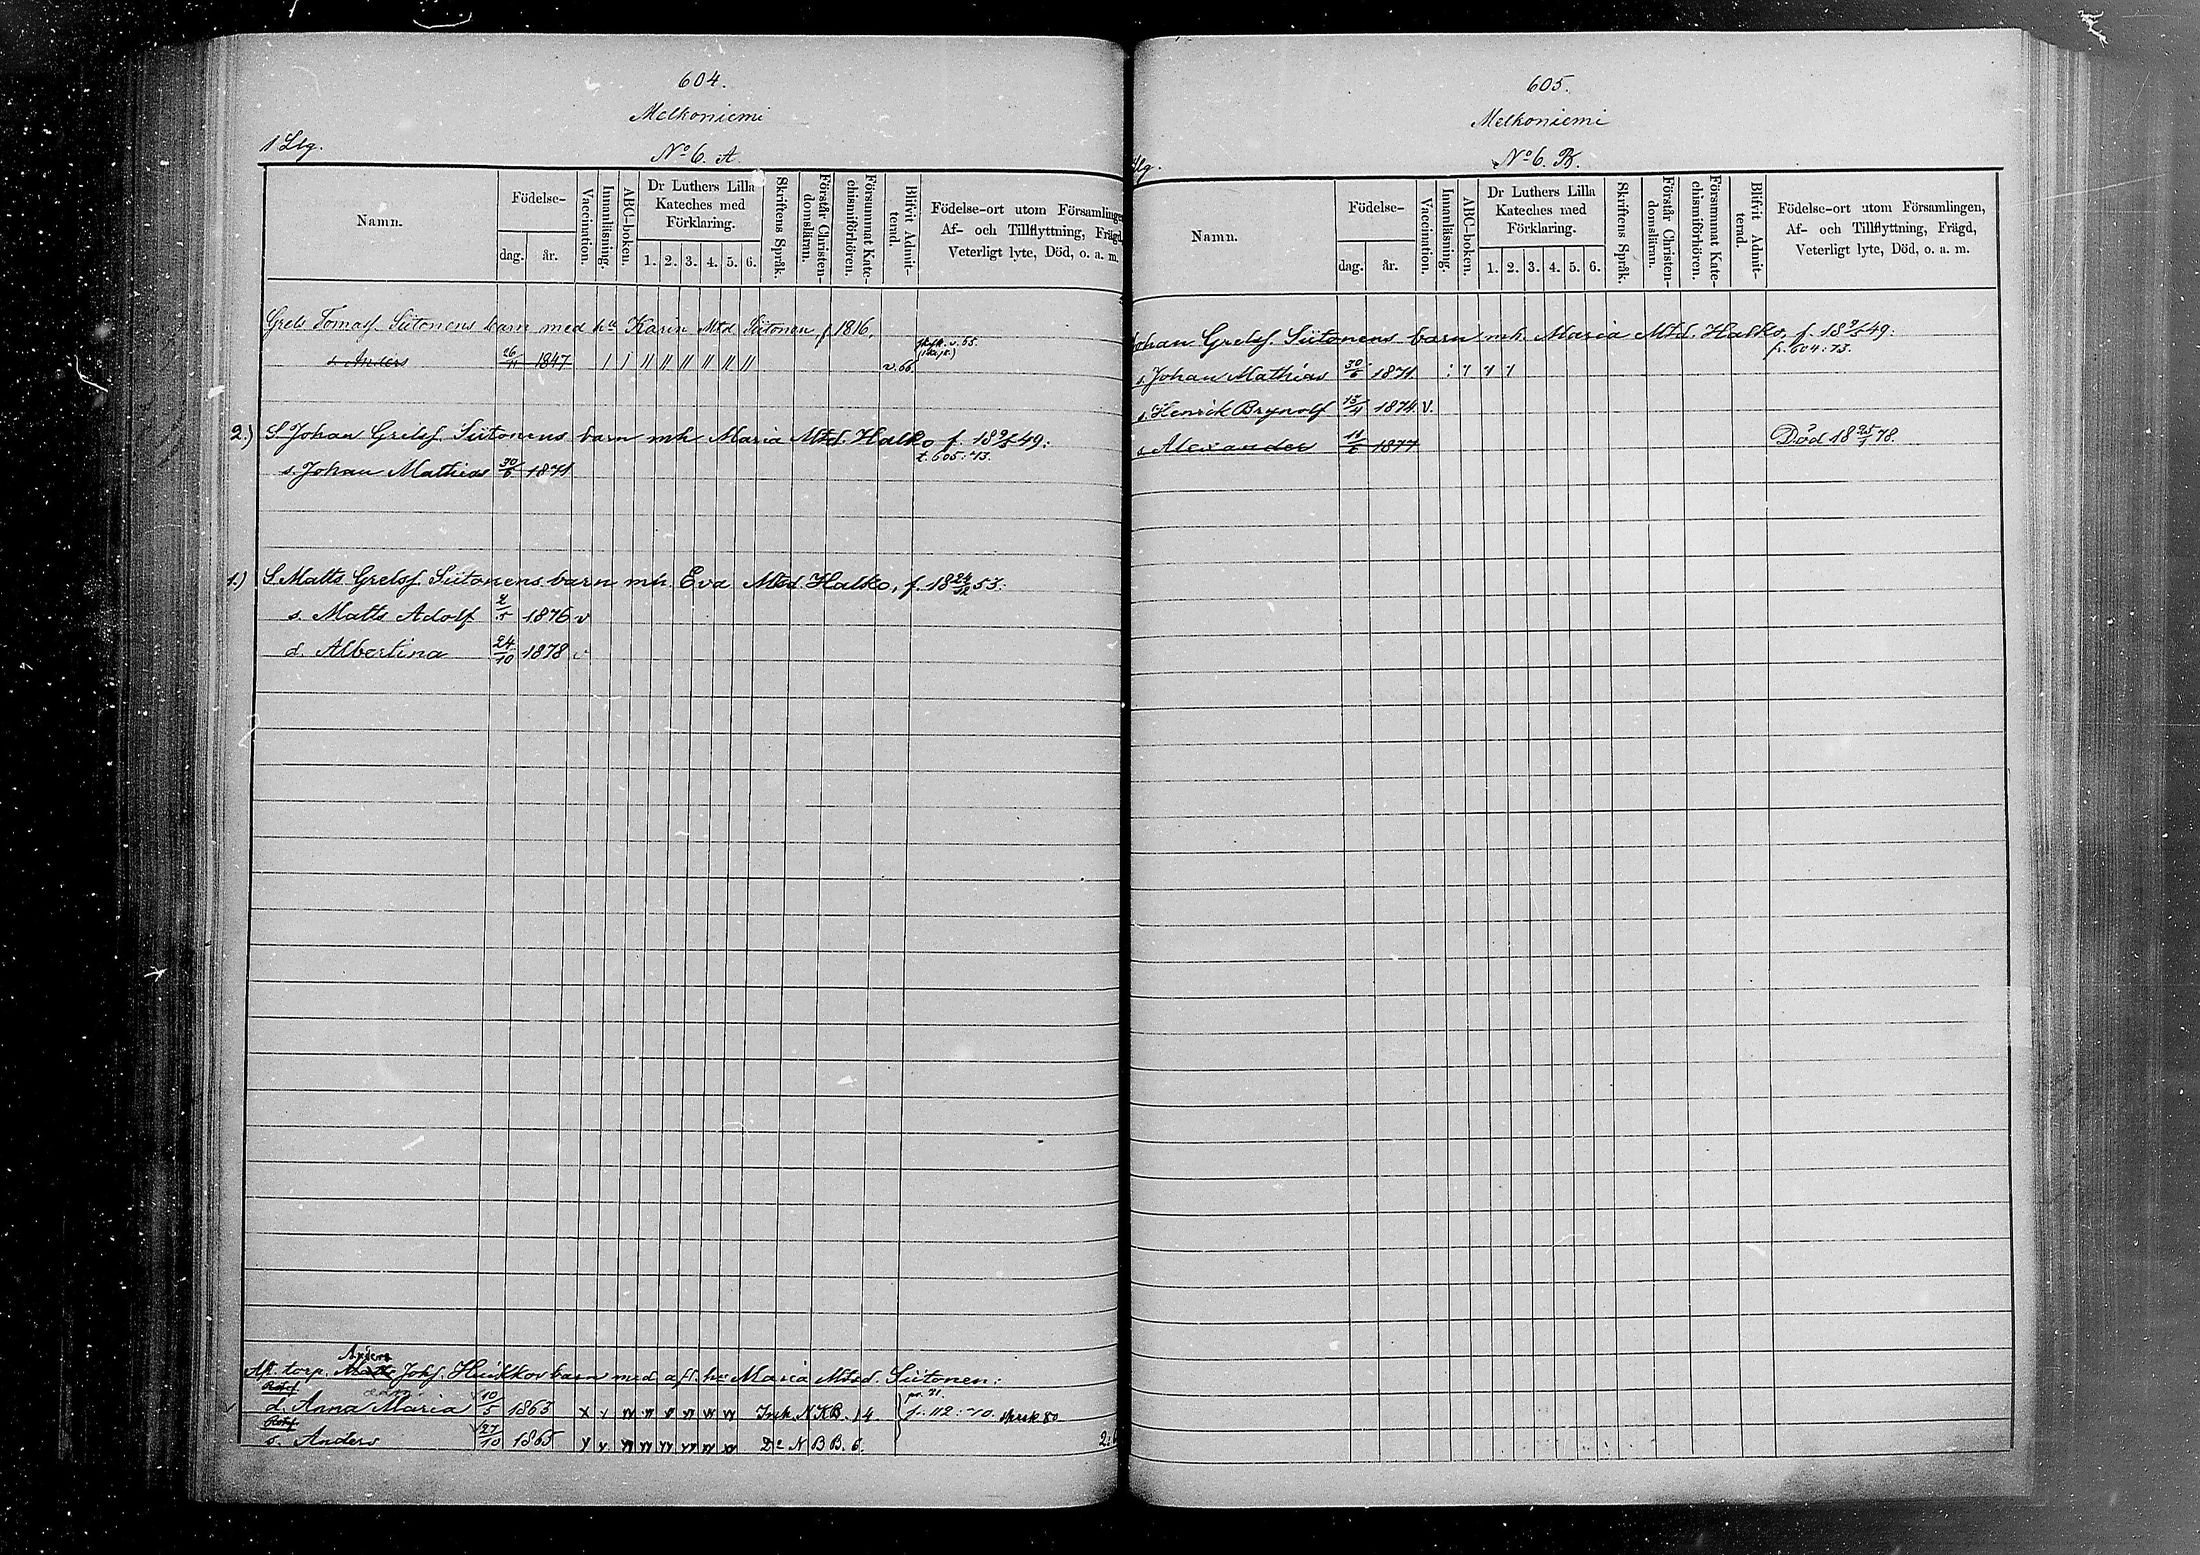 604.
Melkoniemi
1 Llg.
No 6. A.
Namn.
Födelse-
dag.
år.
Vaccination.
Innanläsning.
ABC-boken.
Dr Luthers Lilla
Kateches med
Förklaring.
1. 2. 3. 4. 5. 6.
Skriftens Språk.
Förstår Christen-
domsläran.
Försummat Kate-
chismiförhören.
Blifvit Admit-
terad.
Födelse-ort utom Församlingen,
Af- och Tillflyttning, Frägd,
Veterligt lyte, Död, o. a. m.
Grels Tomasf. Siitonens barn med hu Karin Mtd. Siitonen, f. 1816.
s. Anders 26/11 1847 v. 66.
2.) S. Johan Grelsf. Siitonens barn mh Maria Mtd. Halko f. 18 9/5 49:
t. 605:73.
s. Johan Mathias 30/6 1871
1.) S. Matts Grelsf. Siitonens barn mh. Eva Mtd. Halko, f. 18 24/12 53:
s. Matts Adolf 2/5 1876 v
d. Albertina 24/10 1878 v
Anders
Afl. torp. Johsf. Huikkos barn med afl. hu Maria Mtsd. Siitonen:
d. Anna Maria 10/5 1863 N.K.B. 14. f. 112:70.
s. Anders 27/10 1865 Do N B B. 6.
605.
Melkoniemi
No 6. B.
Namn.
Födelse-
dag.
år.
Vaccination.
Innanläsning.
ABC-boken.
Dr Luthers Lilla
Kateches med
Förklaring.
1. 2. 3. 4. 5. 6.
Skriftens Språk.
Förstår Christen-
domsläran.
Försummat Kate-
chismiförhören.
Blifvit Admit-
terad.
Födelse-ort utom Församlingen,
Af- och Tillflyttning, Frägd,
Veterligt lyte, Död, o. a. m.
Johan Grelsf. Siitonens barn mh Maria Mtd. Halko, f. 18 9/5 49:
fr. 604:73.
s. Johan Mathias 30/6 1871
s. Henrik Brynolf 15/4 1874 v.
s. Alexander 11/6 1877 Död 18 25/1 78.